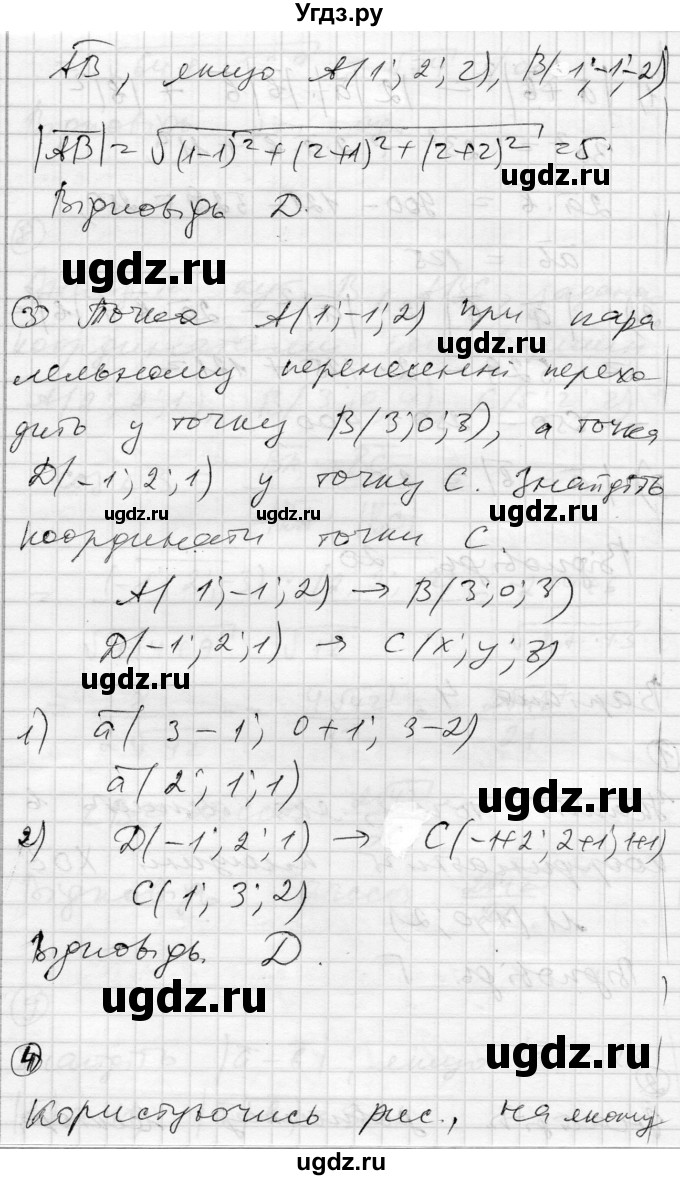 Угдз.ру
AB, якщо A(1; 2; 2), B(1; -1; -2)
|AB| = √(1-1)² + (2+1)² + (2+2)² = 5.
ugdz.ru
Відповідь D.
ugdz.ru
③ Точка A(1; -1; 2) при пара
лельному перенесенні перехо-
дить у точку B(3; 0; 3), а точка
D(-1; 2; 1) у точку C. Знайдіть
ugdz.ru ugdz.ru ugdz.ru
координати точки C.
A(1; -1; 2) → B(3; 0; 3)
D(-1; 2; 1) → C(x; y; z)
ugdz.ru
1) a(3-1; 0+1; 3-2)
a(2; 1; 1)
ugdz.ru
2) D(-1; 2; 1) → C(-1+2; 2+1; 1+1)
C(1; 3; 2)
Відповідь. D.
ugdz.ru
④
ugdz.ru
Користуючись рис., на якому
ugdz.ru